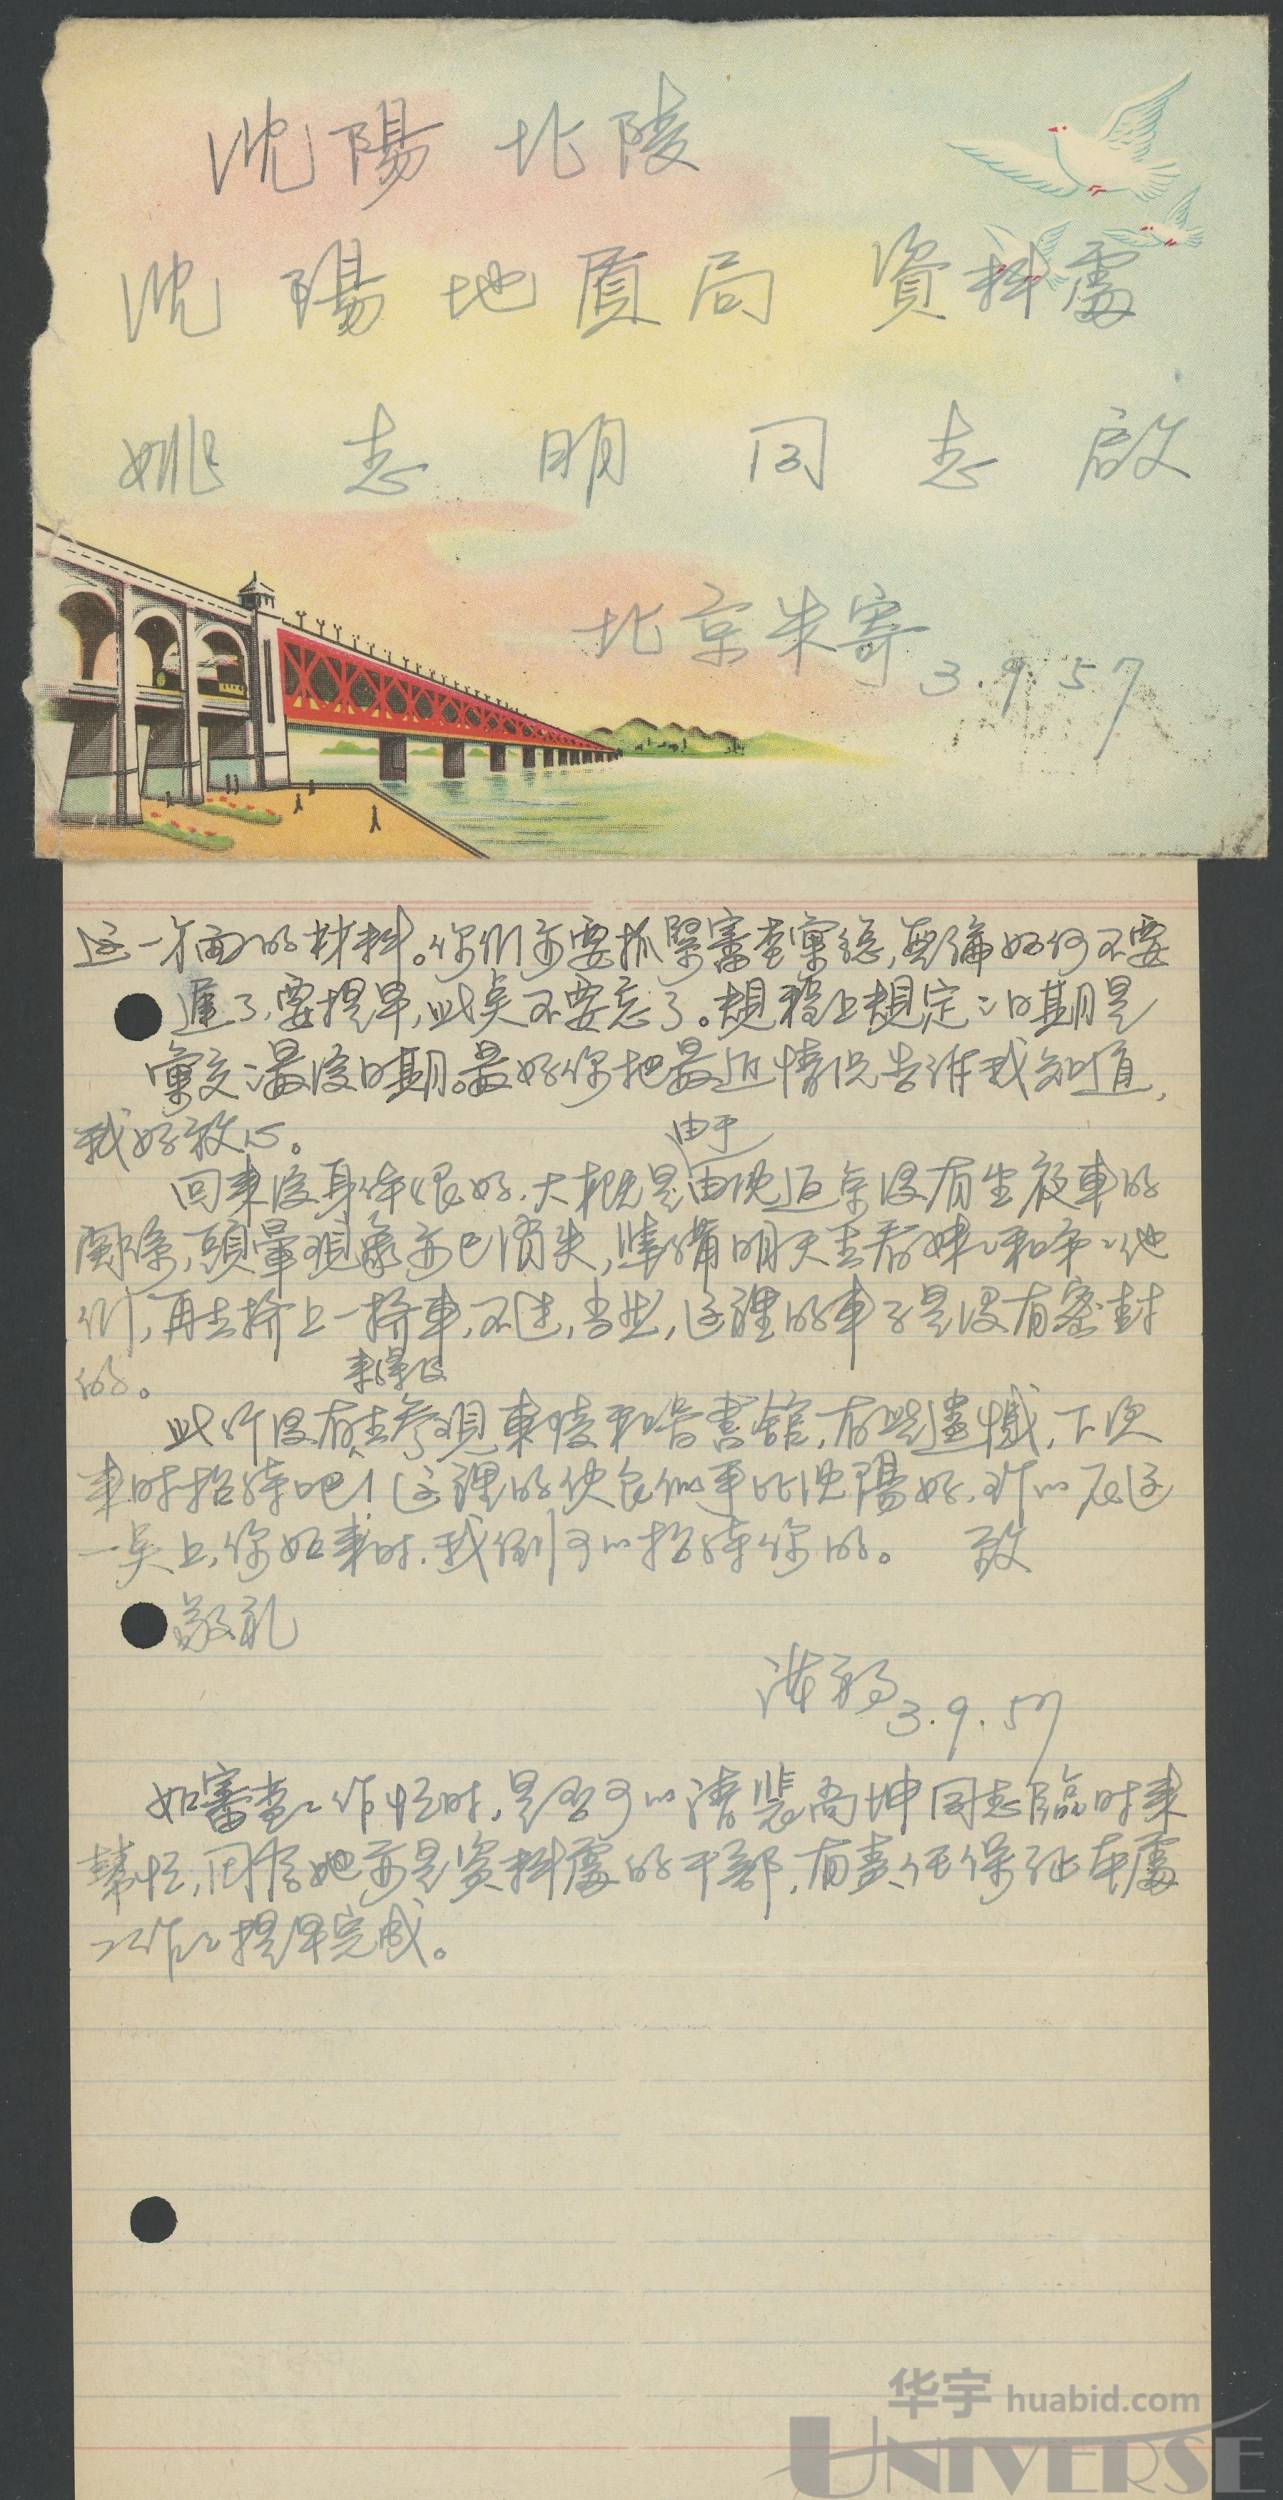 沈陽 北陵
沈陽地質局 資料處
姚志明同志啟
北京朱寄 3.9.57
這一方面的材料。你們亦要抓緊審查彙總,無論如何不要
遲了,要提早,此矣不要忘了。規程上規定:日期是
彙交:最後日期。最好你把最近情况告訴我知道,
我好放心。
由于
回來後身体很好.大概是由沈返京沒有坐夜車的
關係,頭暈現象亦已消失,準備明天去看妹妹和弟弟他
們,再去擠上一擠車,不過,當然,這裡的車子是沒有密封
的。
來得及
此行沒有去參观東陵和圖書館,有些遺憾,下次
來時招待吧!這裡的伙食似乎比沈陽好.所以在這
一矣上,你如來時.我倒可以招待你的。 致
敬礼
3.9.57
如審查工作忙時,是否可以請裴尚坤同志臨時來
幫忙,因為她亦是資料處的干部,有責任保証本處
工作之提早完成。
华宇 huabid.com
UNIVERSE